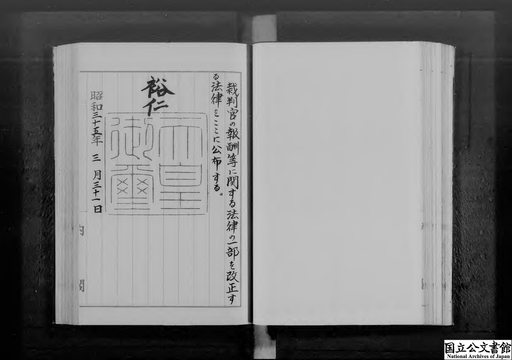 裁判官の報酬等に関する法律の一部を改正す
る法律をここに公布する。
裕仁
天皇
御璽
昭和三十五年三月三十一日
国立公文書館
National Archives of Japan